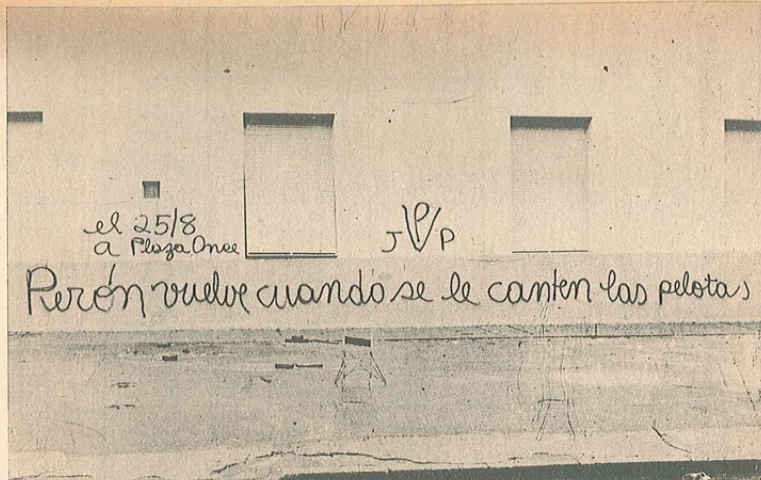 el 25/8
a Plaza Once
J PV P
Perón vuelve cuando se le canten las pelotas